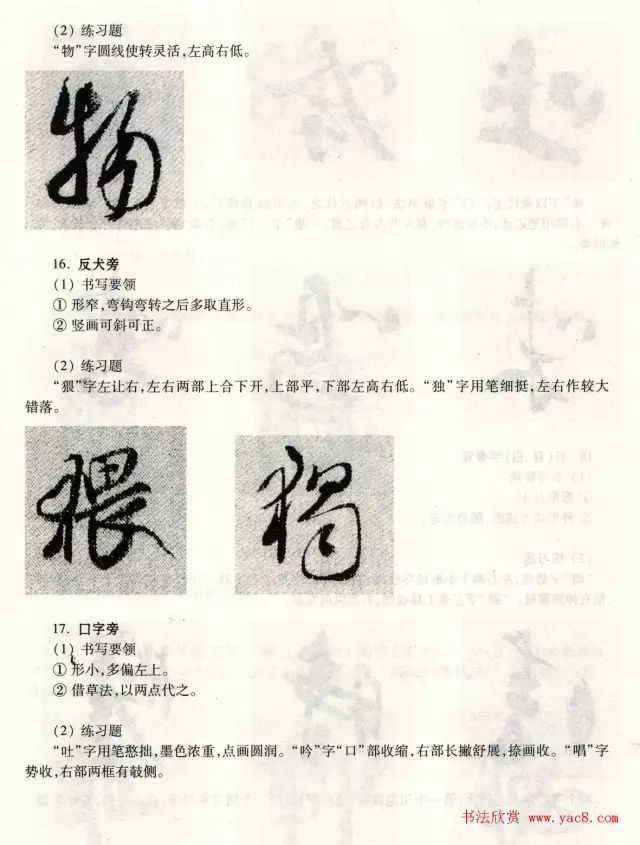 (2) 练习题
“物”字圆线使转灵活,左高右低。
物
16. 反犬旁
(1) 书写要领
① 形窄,弯钩弯转之后多取直形。
② 竖画可斜可正。
(2) 练习题
“猥”字左让右,左右两部上合下开,上部平,下部左高右低。“独”字用笔细挺,左右作较大
错落。
猥 独
17. 口字旁
(1) 书写要领
① 形小,多偏左上。
② 借草法,以两点代之。
(2) 练习题
“吐”字用笔憨拙,墨色浓重,点画圆润。“吟”字“口”部收缩,右部长撇舒展,捺画收。“唱”字
势收,右部两框有欹侧。
书法欣赏 www.yac8.com